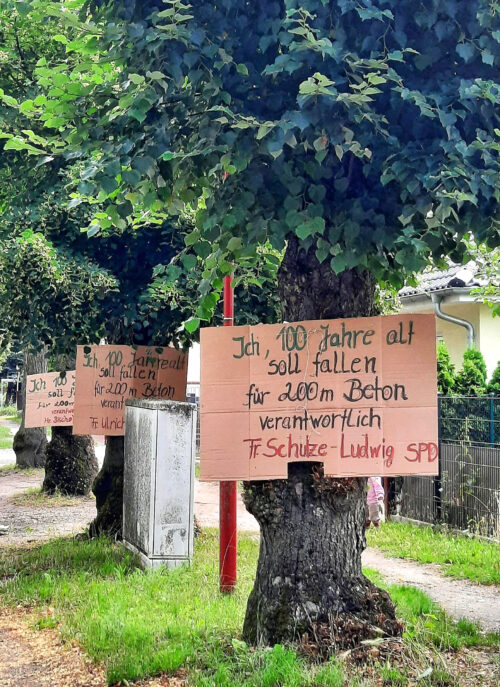 Ich, 100 Jahre alt
soll fallen
für 200m Beton
verantwortlich
Fr. Schulze-Ludwig SPD
Ich, 100 Jahre alt
soll fallen
für 200m Beton
verantwortlich
Fr. Ulrich
Ich, 100
soll
für 200
verant
Hr. Bischof